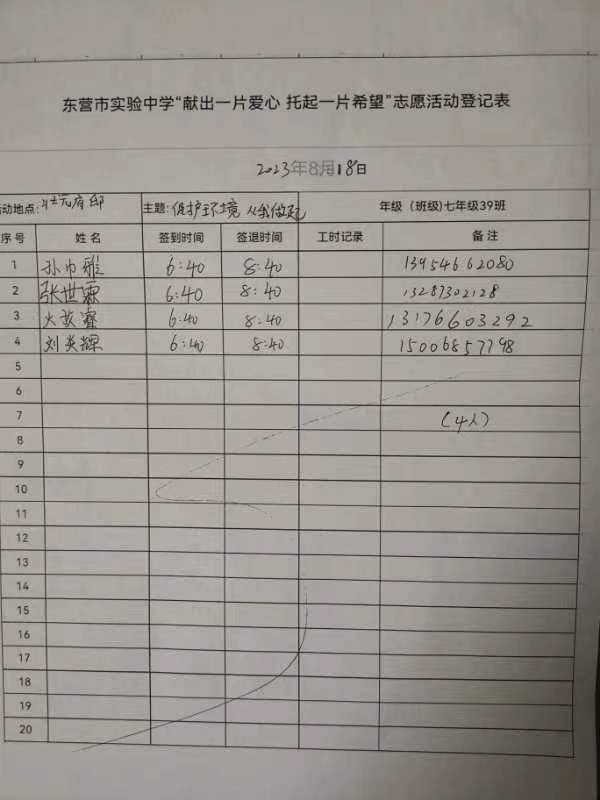 东营市实验中学“献出一片爱心 托起一片希望”志愿活动登记表
2023年8月18日
活动地点:状元府邸 主题:保护环境 从我做起 年级（班级)七年级39班
序号 姓名 签到时间 签退时间 工时记录 备注
1 孙巾雅 6:40 8:40 13954662080
2 张世源 6:40 8:40 13287302128
3 6:40 8:40 13176603292
4 刘英辉 6:40 8:40 15006857798
5
6
7 (4人)
8
9
10
11
12
13
14
15
16
17
18
19
20